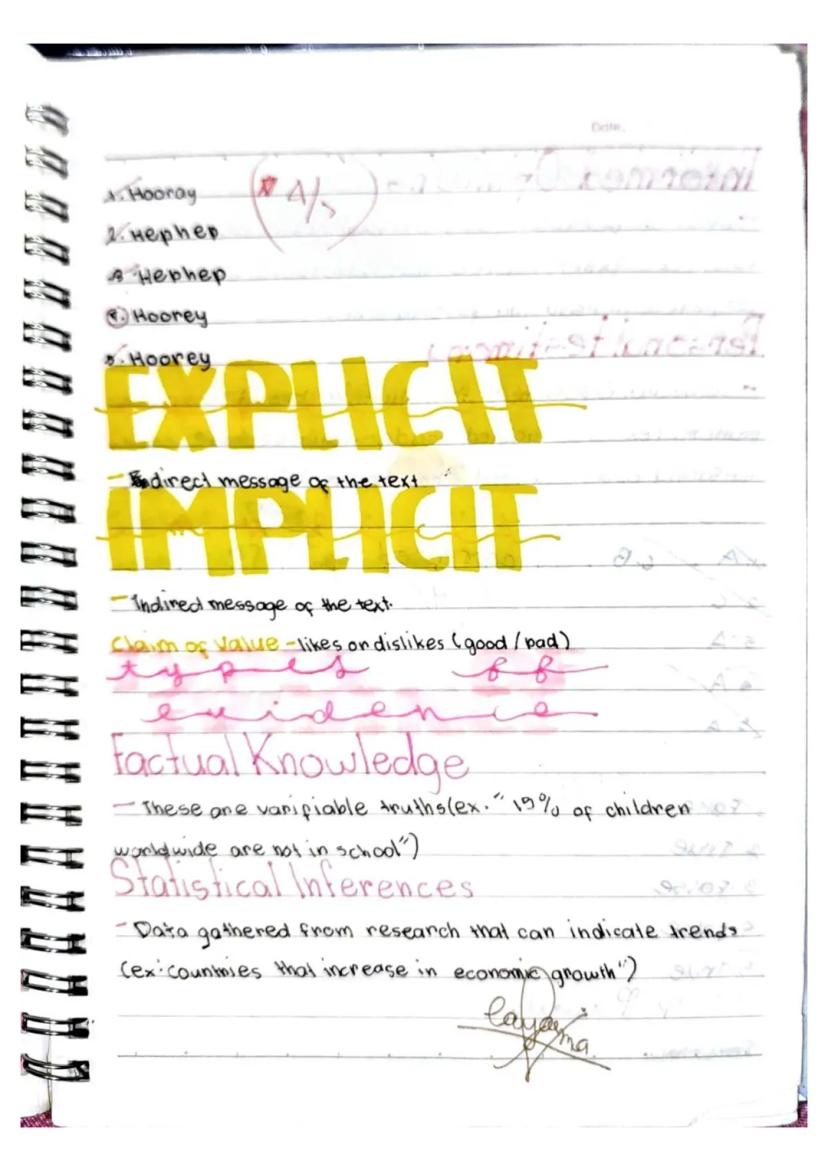 Date.
1. Hooray
4/5
2. Hephep
3. Hephep
4. Hoorey
5. Hoorey
EXPLICIT
- direct message of the text
IMPLICIT
- Indirect message of the text.
Claim of Value - likes or dislikes (good / bad)
types of
evidence
Factual Knowledge
- These are varifiable truths(ex. " 19% of children
worldwide are not in school")
Statistical Inferences
- Data gathered from research that can indicate trends
(ex: countries that increase in economic growth")